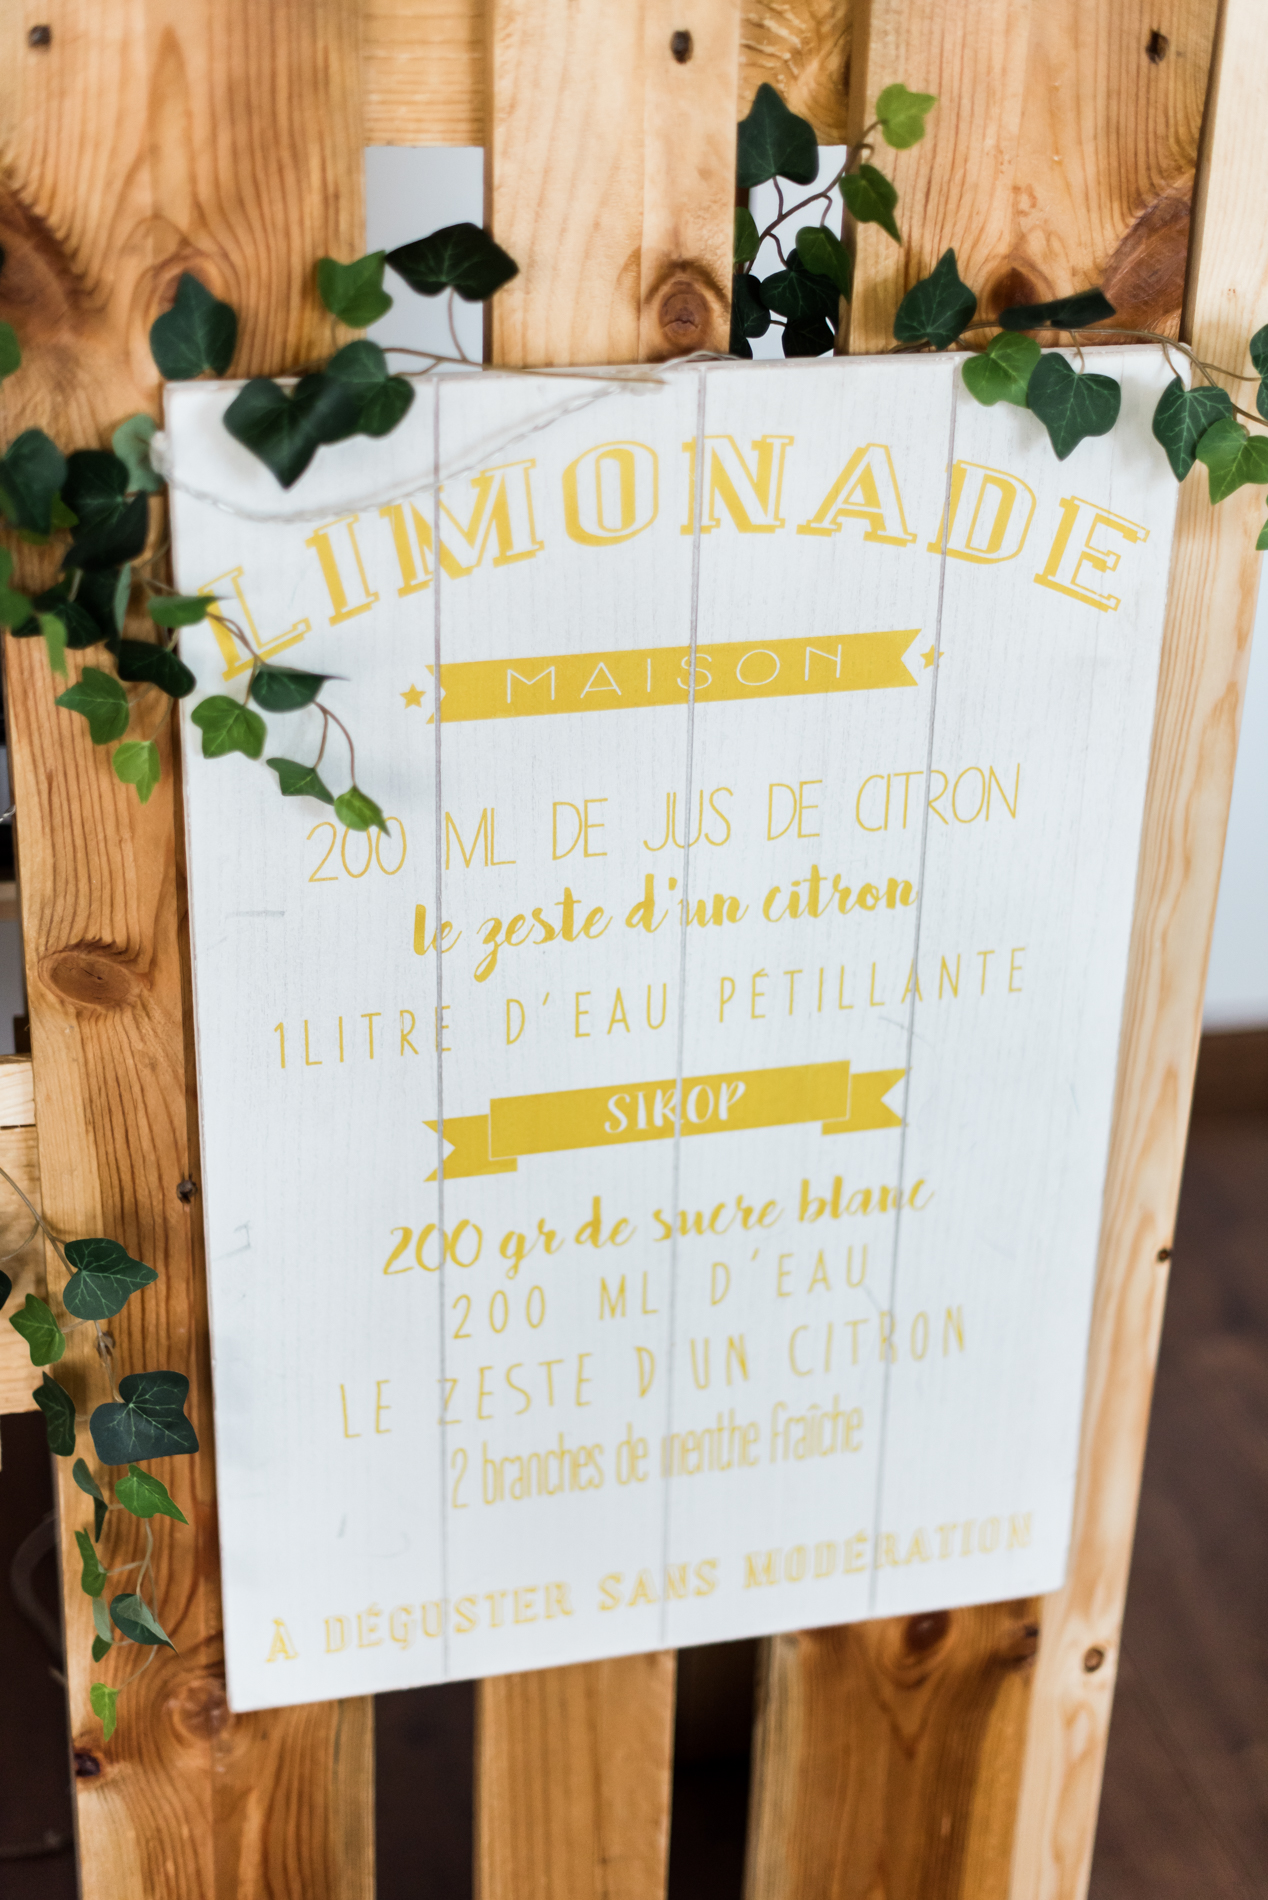 LIMONADE
MAISON
200 ML DE JUS DE CITRON
le zeste d'un citron
1 LITRE D'EAU PÉTILLANTE
SIROP
200 gr de sucre blanc
200 ML D'EAU
LE ZESTE D UN CITRON
2 branches de menthe fraîche
À DÉGUSTER SANS MODÉRATION